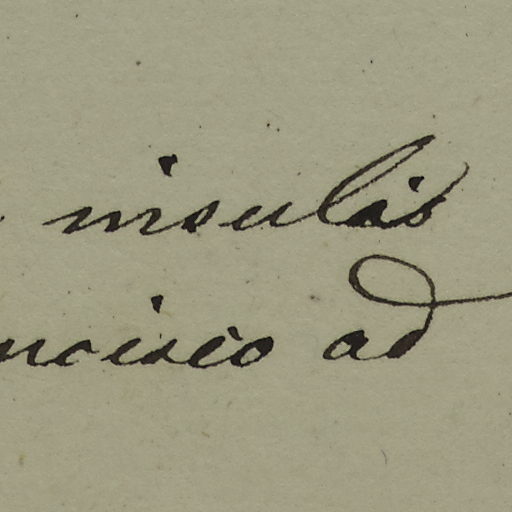 insulis
ncisco ad